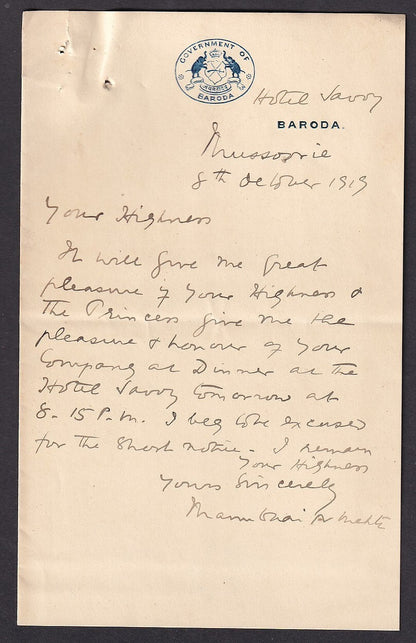 GOVERNMENT OF
BARODA
Hotel Savoy
BARODA.
Mussoorie
8th October 1919
Your Highness
It will give me great
pleasure if Your Highness &
The Princess give me the
pleasure & honour of your
Company at Dinner at the
Hotel Savoy tomorrow at
8-15 P.M. I beg to be excused
for the short notice. I remain
Your Highness
Yours Sincerely
Manubhai N Mehta